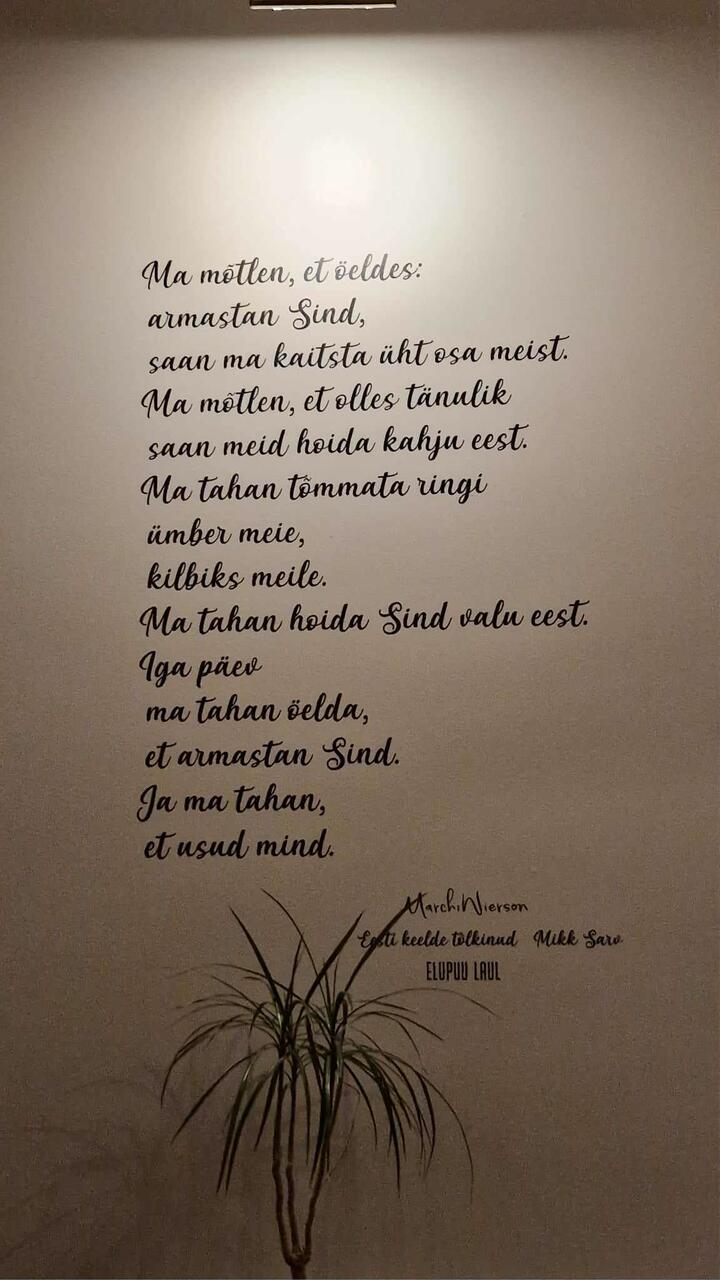 Ma mõtlen, et öeldes:
armastan Sind,
saan ma kaitsta üht osa meist.
Ma mõtlen, et olles tänulik
saan meid hoida kahju eest.
Ma tahan tõmmata ringi
ümber meie,
kilbiks meile.
Ma tahan hoida Sind valu eest.
Iga päev
ma tahan öelda,
et armastan Sind.
Ja ma tahan,
et usud mind.
Marchi Wierson
Eesti keelde tõlkinud Mikk Sarv
ELUPUU LAUL